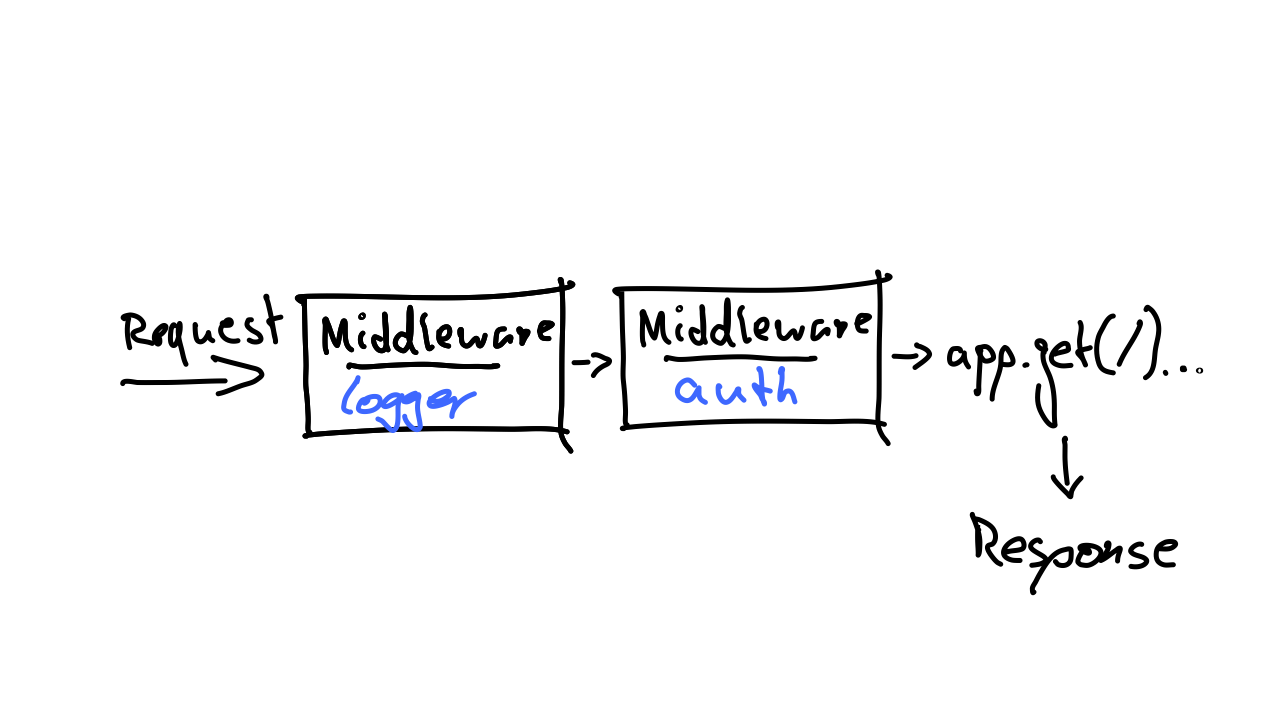 Request
Middleware
logger
Middleware
auth
app.get(/)...
Response